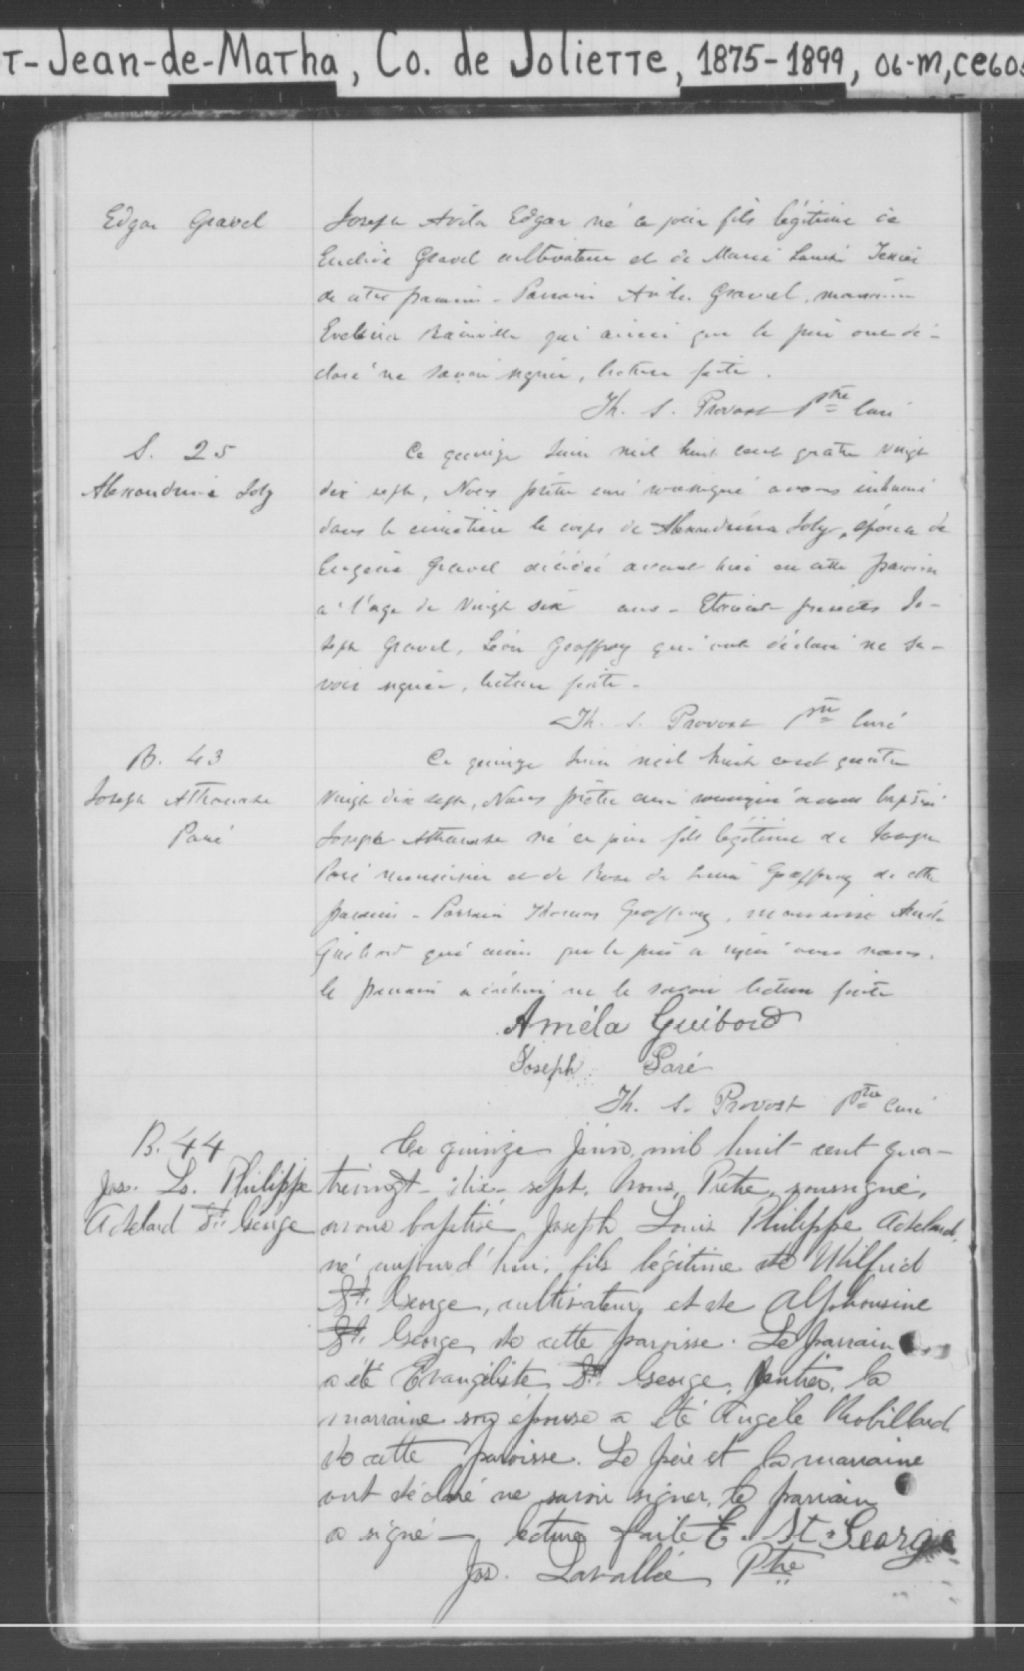 T-Jean-de-Matha, Co. de Joliette, 1875-1899, 06-M,CE605
Edgar Gravel
Joseph Avila Edgar né ce jour fils légitime de
Gravel cultivateur et de Marie Louise
de cette paroisse - Parrain Avila Gravel, marraine
Evelina Rainville qui ainsi que le père ont dé-
claré ne savoir signer, lecture faite.
Th. S. Provost Ptre Curé
S. 25
Alexandrina Joly
Ce quinze Juin mil huit cent quatre vingt
dix sept, Nous prêtre curé soussigné avons inhumé
dans le cimetière le corps de Alexandrina Joly, épouse de
Eugène Gravel décédée avant hier en cette paroisse
à l'age de vingt six ans - Etaient présents Jo-
seph Gravel, Léon Geoffroy qui ont déclaré ne sa-
voir signer, lecture faite -
Th. S. Provost ptre Curé
B. 43
Joseph Athanase
Paré
Ce quinze Juin mil huit cent quatre
vingt dix sept, Nous prêtre curé soussigné avons baptisé
Joseph Athanase né ce jour fils légitime de Joseph
Paré menuisier et de Rose de Lima Geoffroy de cette
paroisse - Parrain Thomas Geoffroy, marraine
Guibord qui ainsi que le père a signé avec nous.
le parrain a déclaré ne le savoir lecture faite
Améla Guibord
Joseph Paré
Th. S. Provost Ptre Curé
B. 44
Jos. Ls. Philippe
Adelard St. George
Ce quinze Juin, mil huit cent qua-
trevingt-dix-sept, Nous, Prêtre, soussigné,
avons baptisé Joseph Louis Philippe Adelard,
né aujourd'hui, fils légitime de Wilfrid
St. George, cultivateur, et de Alphonsine
St. George, de cette paroisse. Le parrain
a été Evangéliste St. George, rentier, la
marraine son épouse a été Angèle Robillard
de cette paroisse. Le père et la marraine
ont déclaré ne savoir signer, le parrain
a signé - lecture faite E. St-George
Jos. Lavallée, Ptre